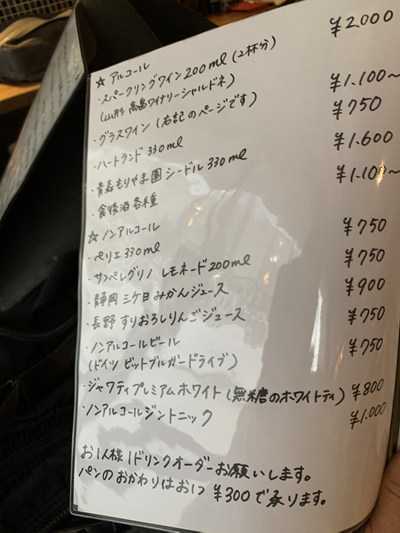 ☆ アルコール
・スパークリングワイン 200ml (2杯分) ¥2,000
(山形 高畠ワイナリーシャルドネ)
・グラスワイン (右記のページです) ¥1,100～
・ハートランド 330ml ¥750
・青森もりやま園 シードル 330ml ¥1,600
・食後酒各種 ¥1,100～
☆ ノンアルコール
・ペリエ 330ml ¥750
サンペレグリノ レモネード 200ml ¥750
・静岡 三ケ日みかんジュース ¥900
・長野 すりおろしりんごジュース ¥750
・ノンアルコールビール ¥750
(ドイツ ビットブルガードライブ)
・ジャワティプレミアムホワイト (無糖のホワイトティ) ¥800
・ノンアルコールジントニック ¥1,000
お1人様1ドリンクオーダーお願いします。
パンのおかわりはお1つ ¥300で承ります。